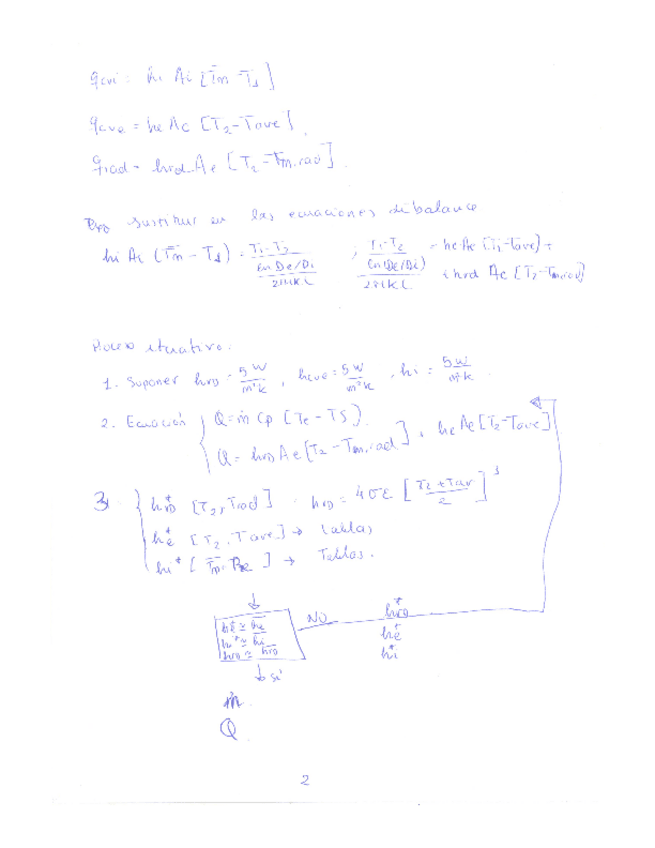 qcvi = hi Ai [Tm - T1]
qcve = he Ae [T2 - Tave].
qrad = hrd Ae [T2 - Tm,rad].
sustituir en las ecuaciones de balance
hi Ai (Tm - T1) = T1 - T2 / (Ln De/Di / 2πKL) ; T1 - T2 / (Ln (De/Di) / 2πKL) = he Ae [T2 - Tave] +
+ hrd Ae [T2 - Tm,rad]
Proceso iterativo.
1. Suponer hrD = 5 W/m²K , hcve = 5 W/m²K , hi = 5 W/m²K .
2. Ecuación { Q = ṁ cp [Te - TS].
Q = hrD Ae [T2 - Tm,rad] + he Ae [T2 - Tave]
3. { hrD* [T2, Trad] hrD = 4σε [T2 + Tav / 2]³
he* [T2, Tave] → tablas
hi* [Tm, ] → Tablas.
he* ≃ he
hi* ≃ hi
hrD ≃ hrD
NO
hrD*
he*
hi*
↓ si
ṁ
Q
2